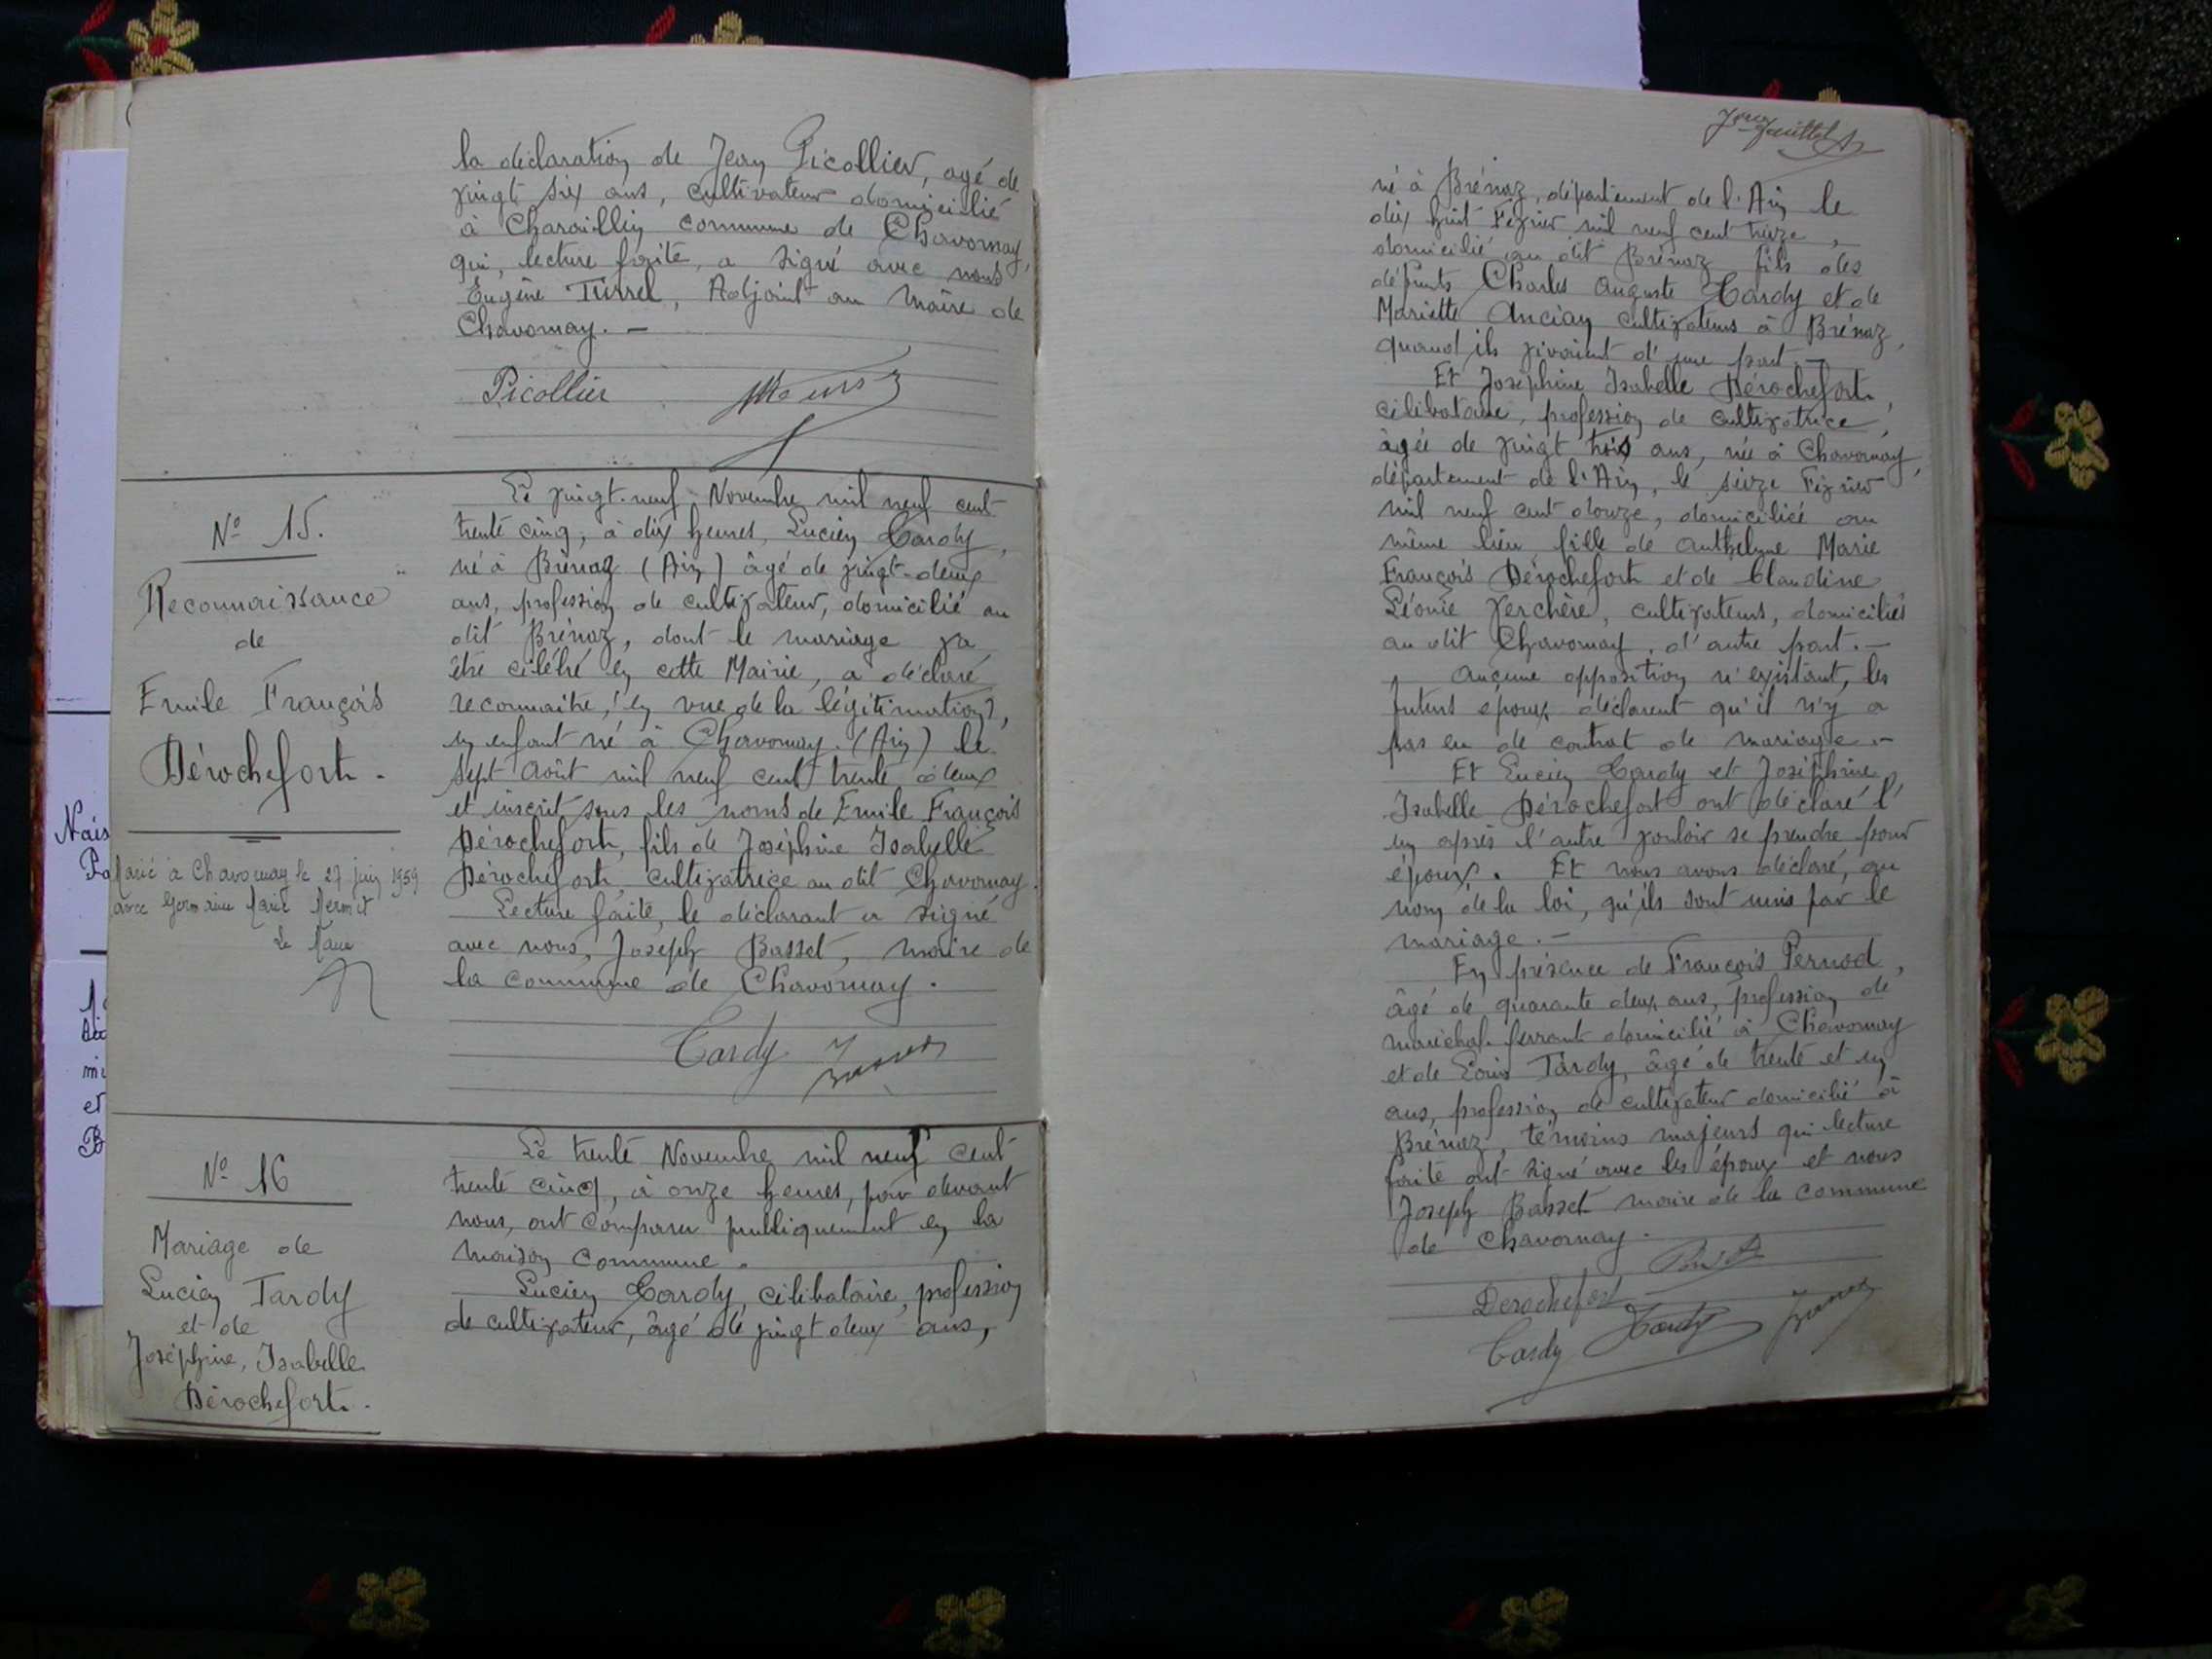 la déclaration de Jean Picollier, agé de
vingt six ans, cultivateur domicilié
à Charaillin commune de Chavornay,
qui, lecture faite, a signé avec nous
Eugène Turrel, Adjoint au Maire de
Chavornay. —
Picollier
Nº 15.
Reconnaissance
de
Emile François
Dérochefort.
Marié à Chavornay le 27 juin 1959
avec Germaine Marie Mermet
Le Maire
Le vingt-neuf Novembre mil neuf cent
trente cinq, à dix heures, Lucien Tardy,
né à Brénaz (Ain) âgé de vingt-deux
ans, profession de cultivateur, domicilié au
dit Brénaz, dont le mariage va
être célébré en cette Mairie, a déclaré
reconnaitre, (en vue de la légitimation),
un enfant né à Chavornay (Ain) le
sept Août mil neuf cent trente deux
et inscrit sous les noms de Emile François
Dérochefort, fils de Joséphine Isabelle
Dérochefort cultivatrice au dit Chavornay.
Lecture faite, le déclarant a signé
avec nous, Joseph Basset, maire de
la commune de Chavornay.
Tardy
Nº 16
Mariage de
Lucien Tardy
et de
Joséphine, Isabelle
Dérochefort.
Le trente Novembre mil neuf cent
trente cinq, à onze heures, par devant
nous, ont comparu publiquement en la
maison commune.
Lucien Tardy, célibataire, profession
de cultivateur, âgé de vingt deux ans,
né à Brénaz, département de l'Ain le
dix huit Février mil neuf cent treize,
domicilié au dit Brénaz fils des
défunts Charles Auguste Tardy et de
Mariette Ancian cultivateurs à Brénaz,
quand ils vivaient d'une part. —
Et Joséphine Isabelle Dérochefort,
célibataire, profession de cultivatrice,
âgée de vingt trois ans, née à Chavornay,
département de l'Ain, le seize Février
mil neuf cent douze, domiciliée au
même lieu fille de Anthelme Marie
François Dérochefort et de Claudine
Léonie Verchère, cultivateurs, domiciliés
au dit Chavornay, d'autre part. —
Aucune opposition n'existant, les
futurs époux déclarent qu'il n'y a
pas eu de contrat de mariage. —
Et Lucien Tardy et Joséphine
Isabelle Dérochefort ont déclaré l'
un après l'autre vouloir se prendre pour
époux. Et nous avons déclaré, au
nom de la loi, qu'ils sont unis par le
mariage. —
En présence de François Pernod,
âgé de quarante deux ans, profession de
maréchal-ferrant domicilié à Chavornay
et de Louis Tardy, âgé de trente et un
ans, profession de cultivateur domicilié à
Brénaz, témoins majeurs qui lecture
faite ont signé avec les époux et nous
Joseph Basset maire de la commune
de Chavornay.
Derochefort
Tardy Tardy